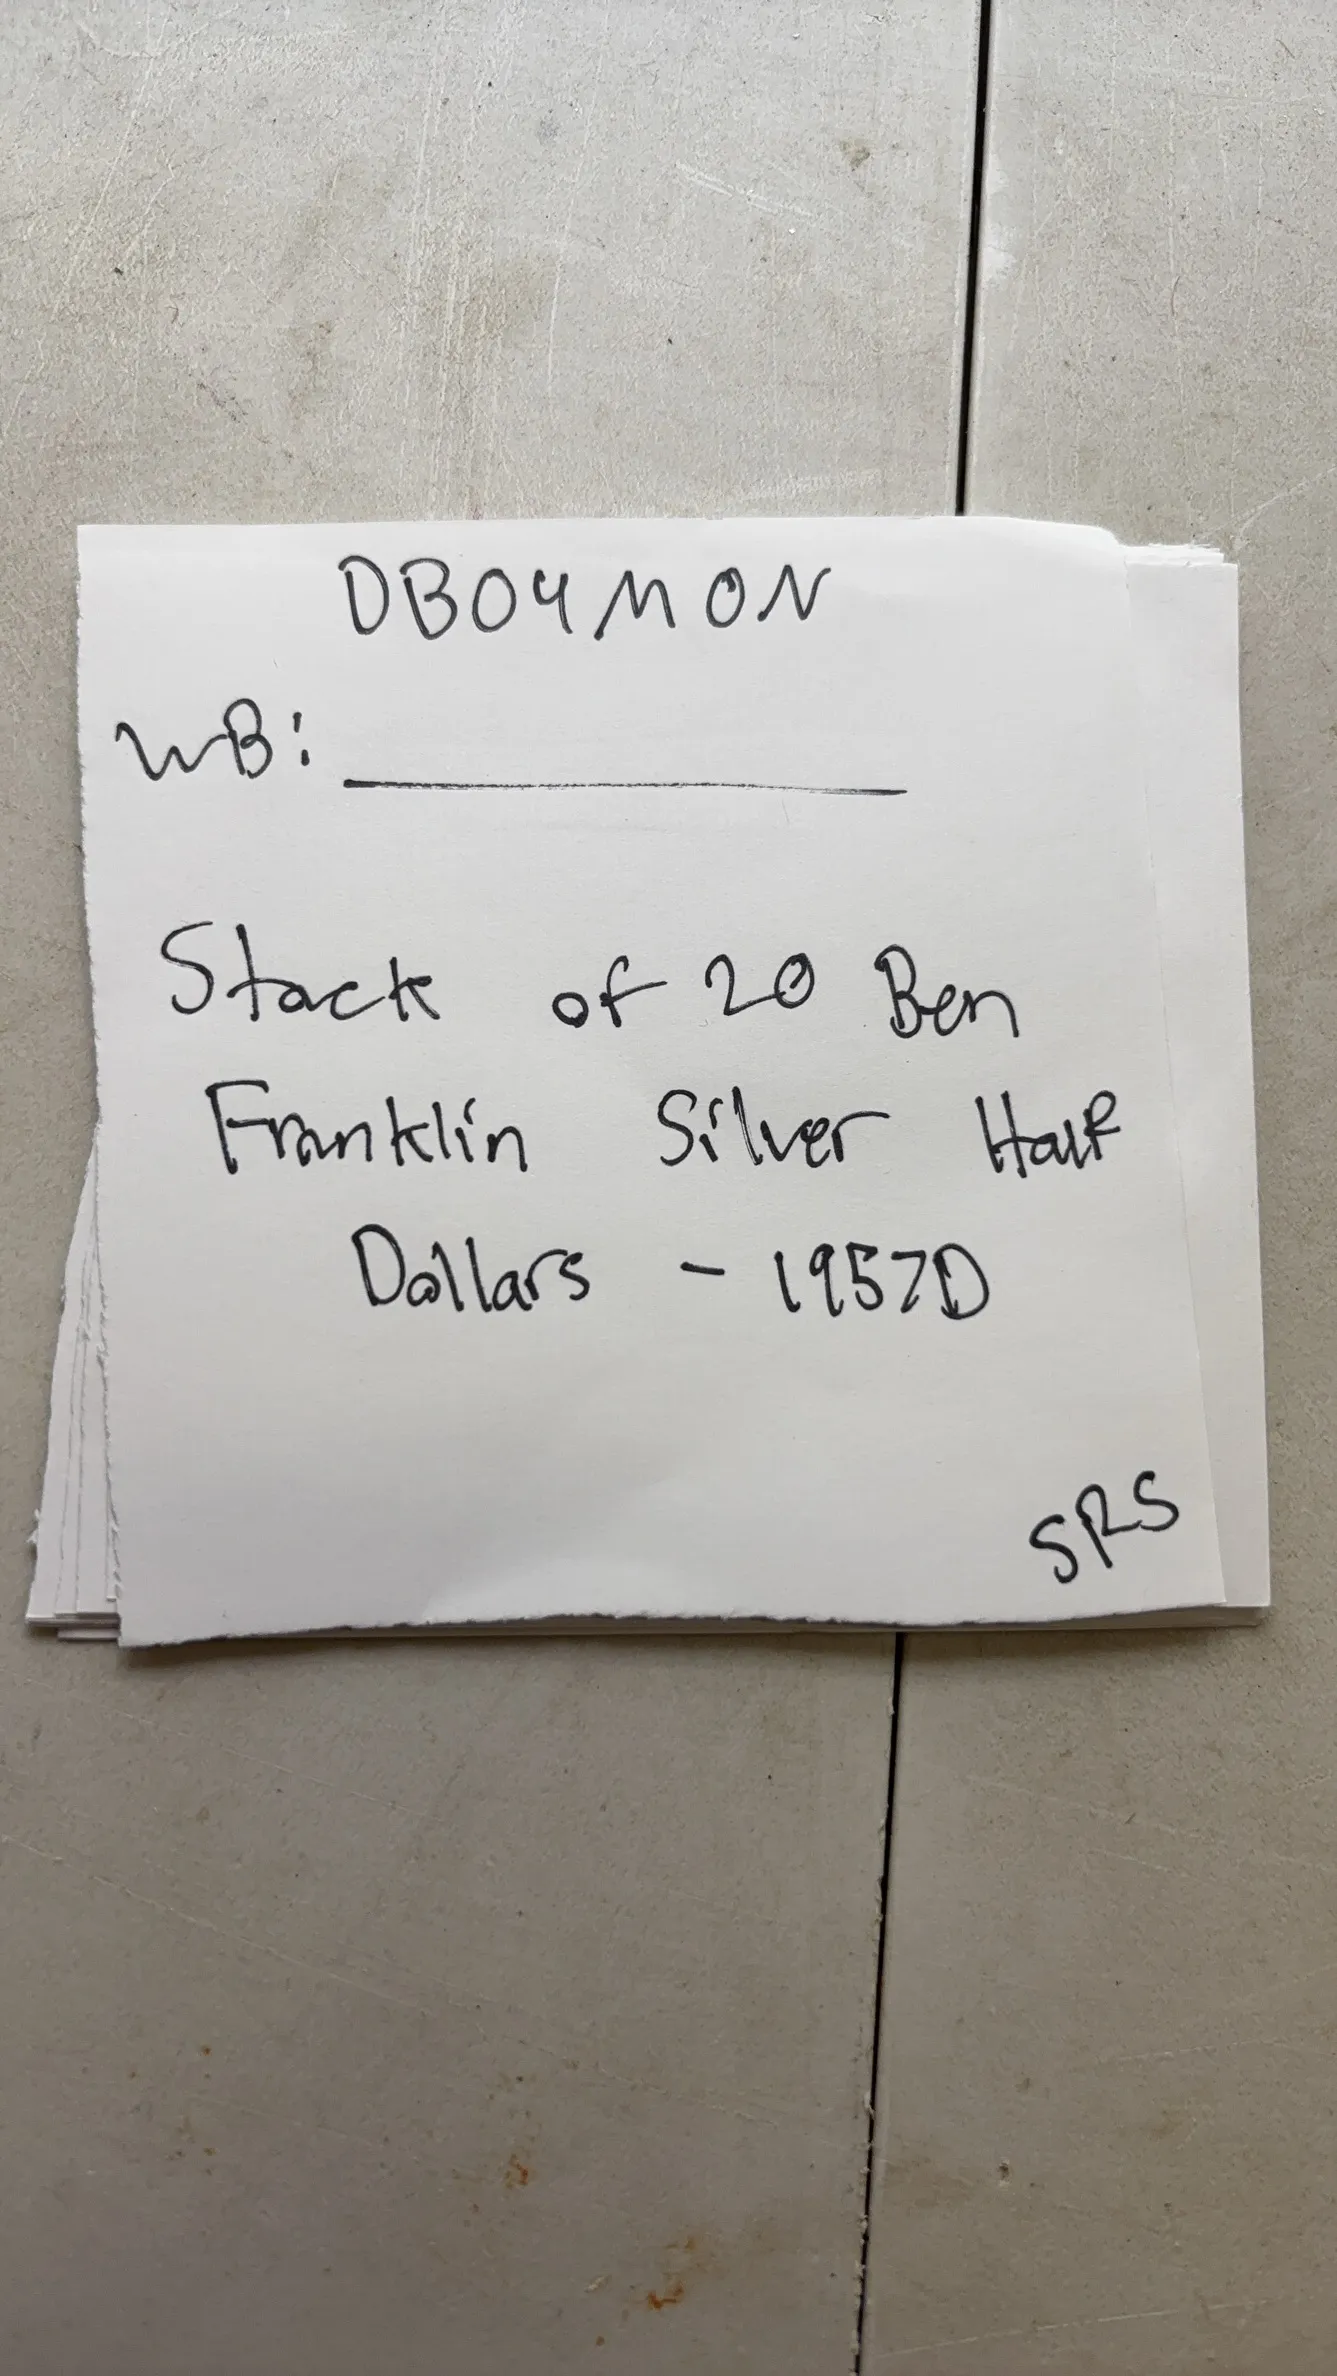 DBO4MON
WB: ____________
Stack of 20 Ben
Franklin Silver Half
Dollars - 1957D
SRS